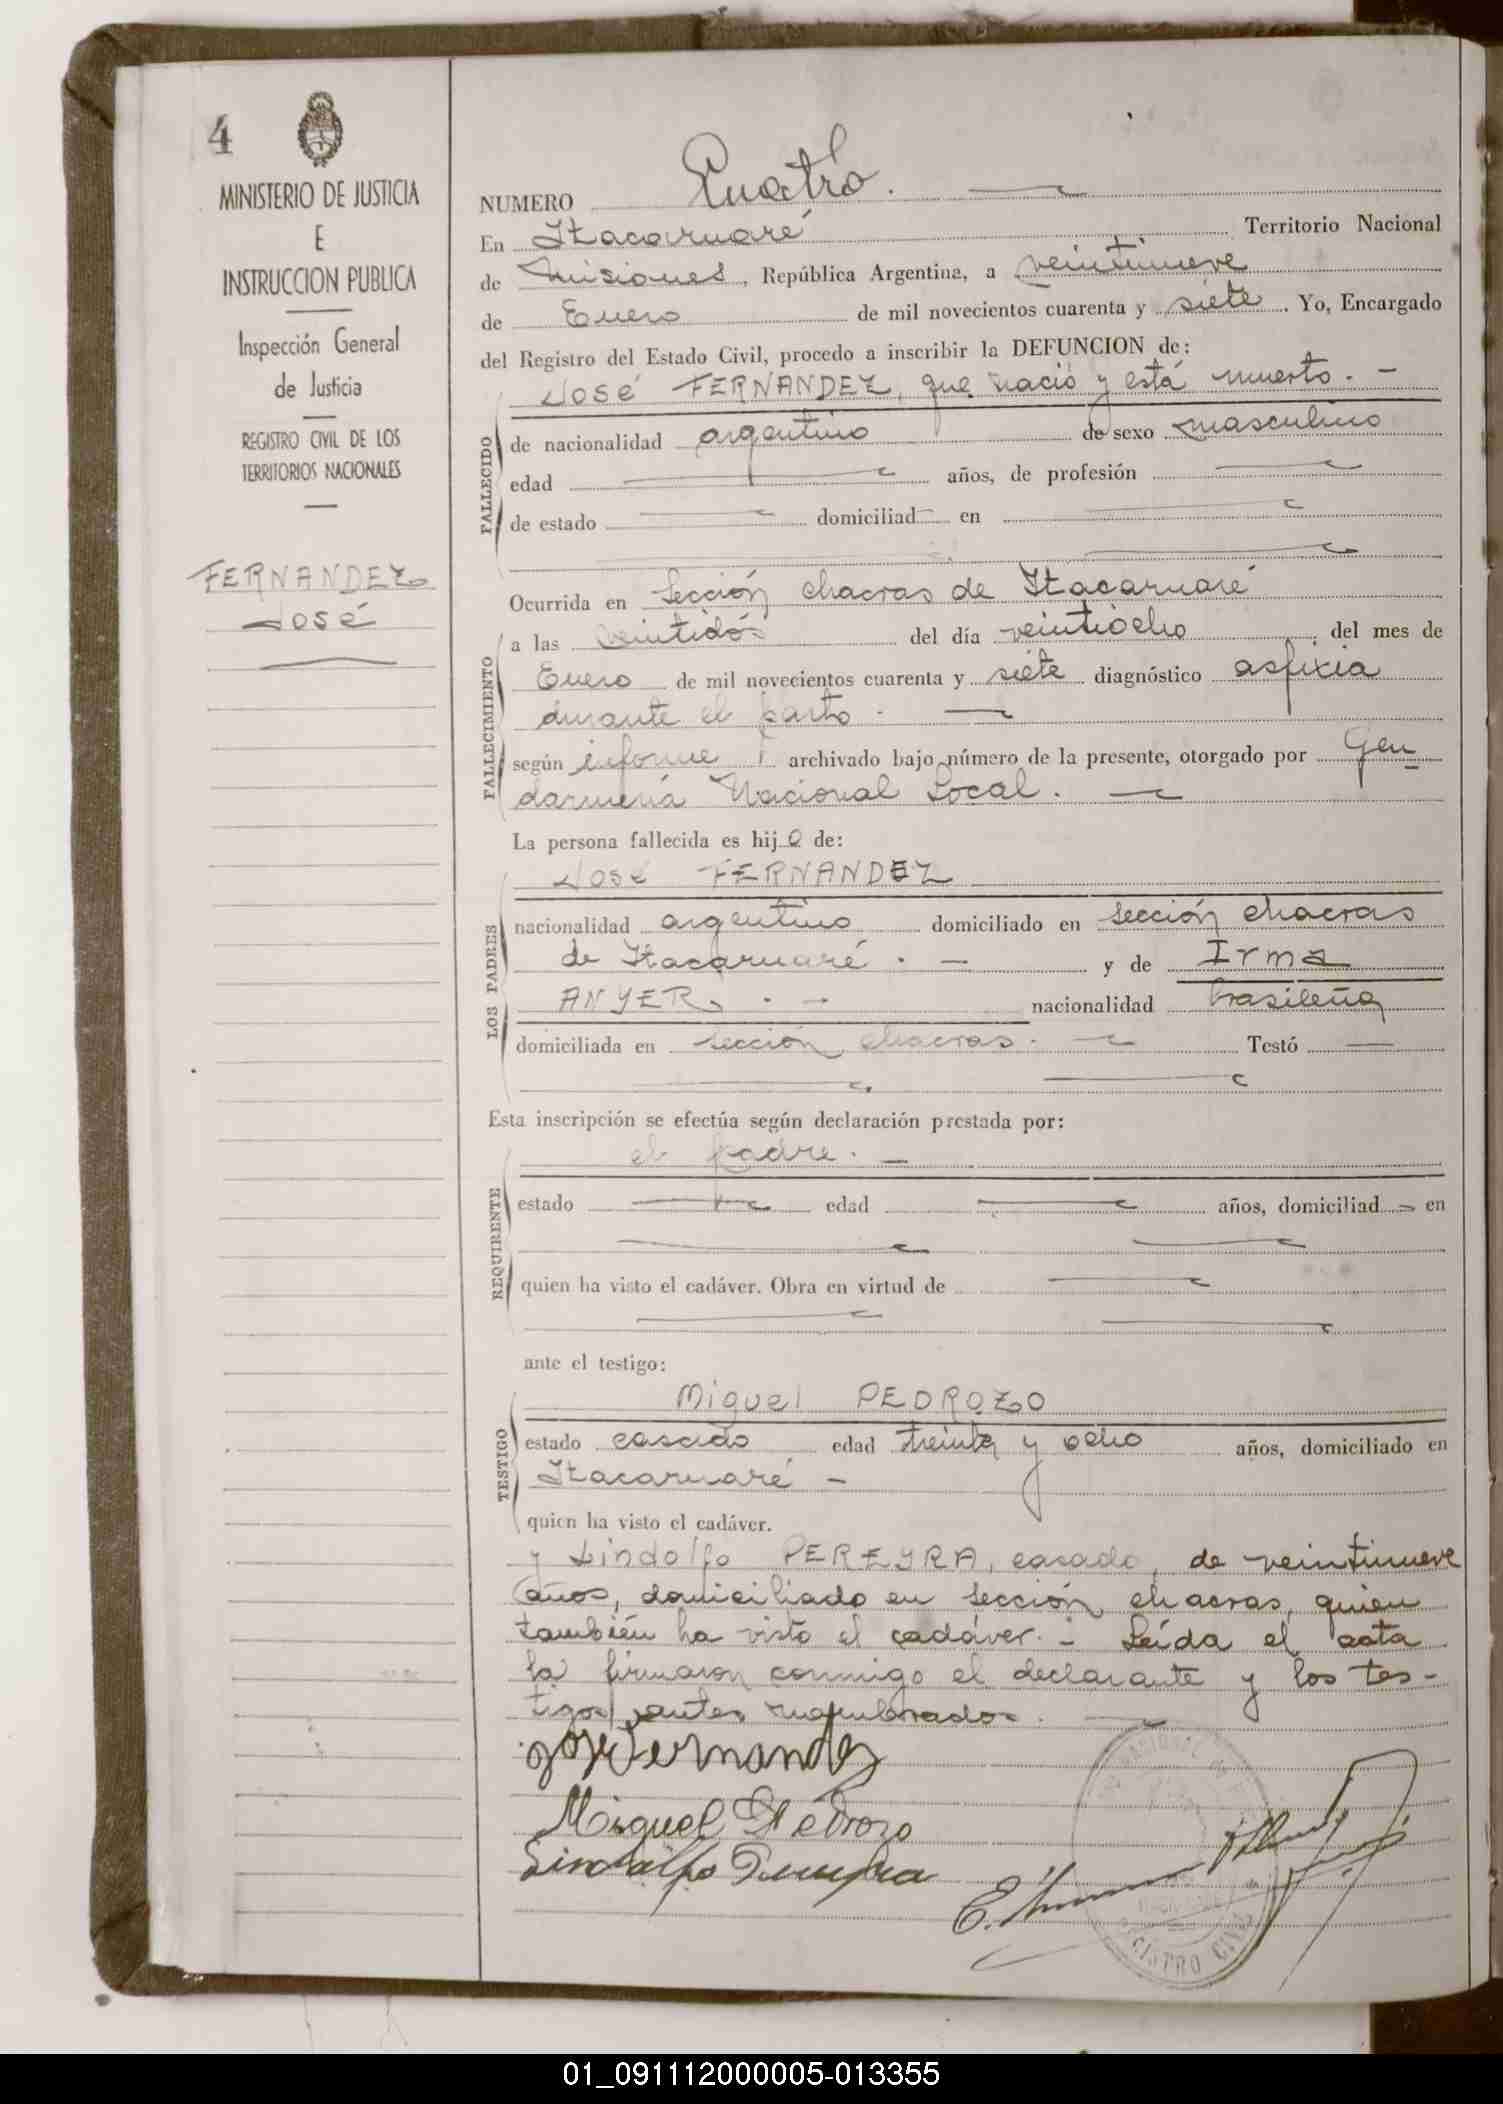 4
MINISTERIO DE JUSTICIA
E
INSTRUCCION PUBLICA
Inspección General
de Justicia
REGISTRO CIVIL DE LOS
TERRITORIOS NACIONALES
FERNANDEZ
José
NUMERO Cuatro.
En Itacaruaré Territorio Nacional
de Misiones, República Argentina, a veintinueve
de Enero de mil novecientos cuarenta y siete. Yo, Encargado
del Registro del Estado Civil, procedo a inscribir la DEFUNCION de:
José FERNANDEZ, que nació y está muerto. -
FALLECIDO
de nacionalidad argentino de sexo masculino
edad años, de profesión
de estado domiciliad en
FALLECIMIENTO
Ocurrida en Sección chacras de Itacaruaré
a las veintidós del día veintiocho del mes de
Enero de mil novecientos cuarenta y siete diagnóstico asfixia
durante el parto. -
según informe archivado bajo número de la presente, otorgado por Gen
darmería Nacional Local. -
La persona fallecida es hijo de:
LOS PADRES
José FERNANDEZ
nacionalidad argentino domiciliado en sección chacras
de Itacaruaré. - y de Irma
ANYER. - nacionalidad brasileña
domiciliada en sección chacras. - Testó -
Esta inscripción se efectúa según declaración prestada por:
REQUIRENTE
el padre. -
estado edad años, domiciliad en
quien ha visto el cadáver. Obra en virtud de
ante el testigo:
TESTIGO
Miguel PEDROZO
estado casado edad treinta y ocho años, domiciliado en
Itacaruaré -
quien ha visto el cadáver.
y Lindolfo PEREYRA, casado, de veintinueve
años, domiciliado en sección chacras, quien
también ha visto el cadáver. - Leída el acta
la firmaron conmigo el declarante y los tes-
tigos antes nombrados. -
José Fernandez
Miguel Pedrozo
Lindolfo Pereyra
REGISTRO CIVIL
01_091112000005-013355